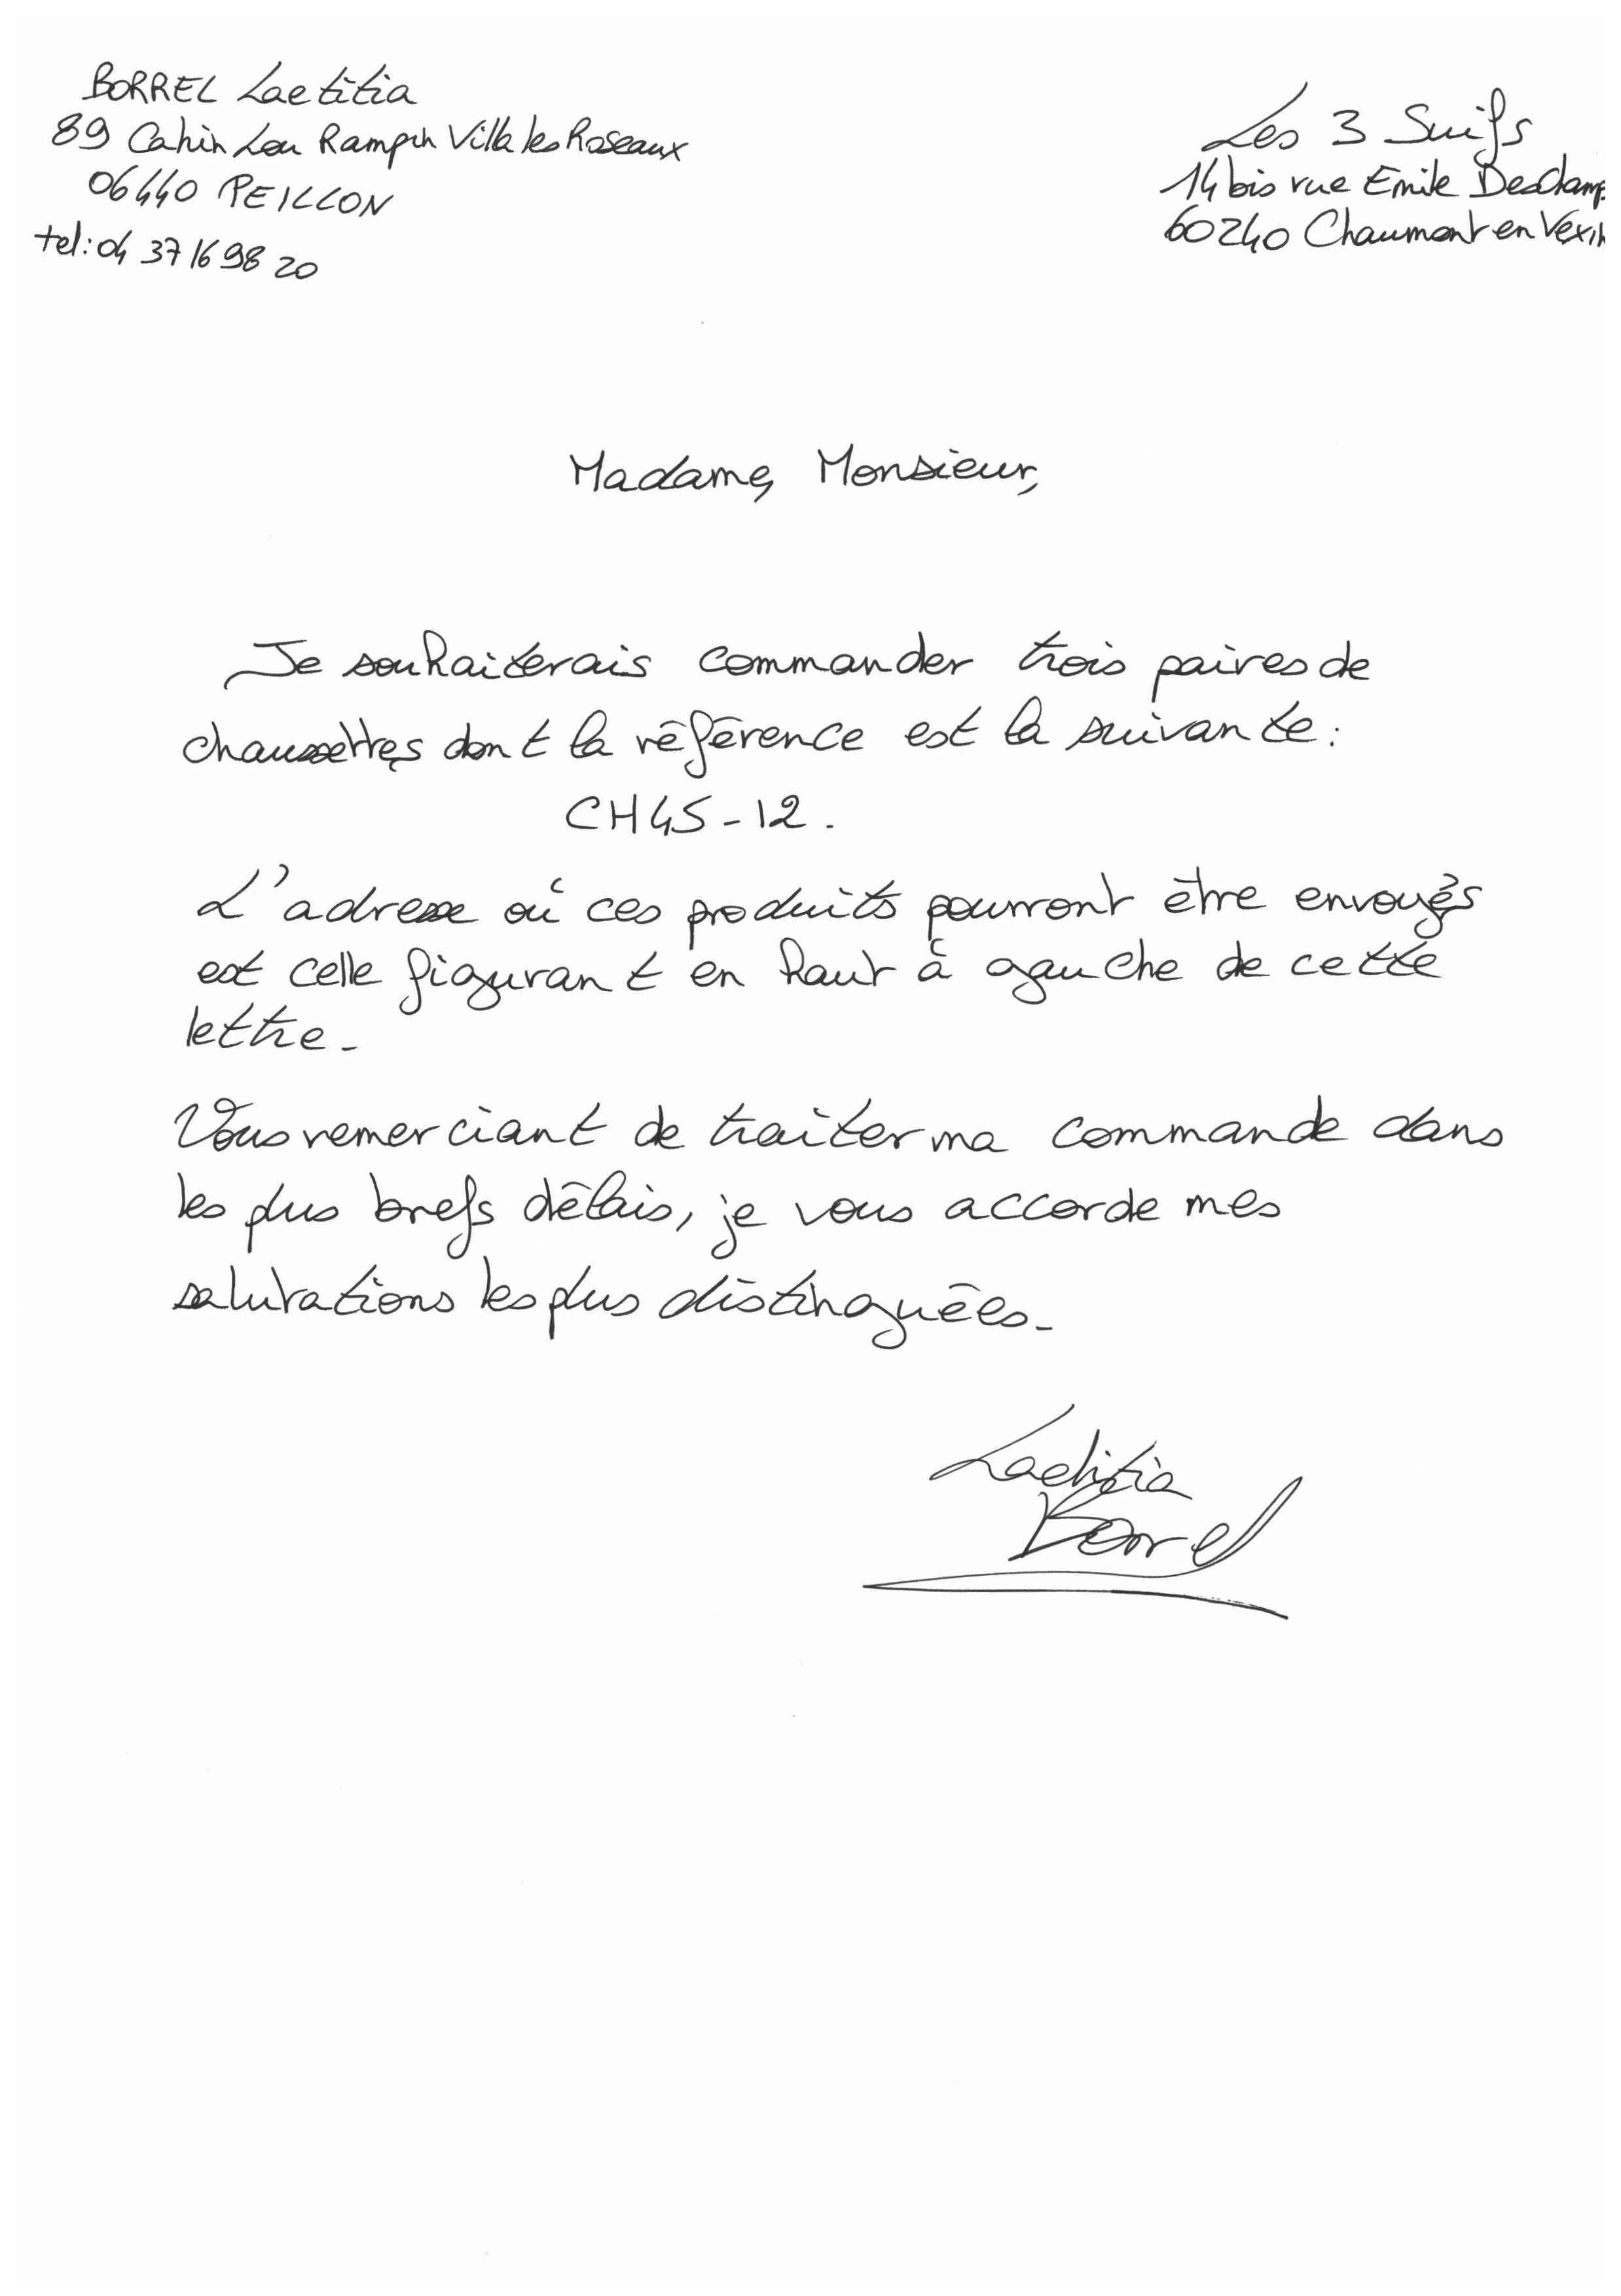 BORREL Laetitia
89 Cahin Lou Rampin Villa les Roseaux
06440 PEILLON
tel: 04 37 16 98 20
Les 3 Suifs
14 bis rue Emile Deschamps
60240 Chaumont en Vexin
Madame, Monsieur,
Je souhaiterais commander trois paires de
chaussettes dont la référence est la suivante :
CH45-12.
L'adresse où ces produits pourront être envoyés
est celle figurant en haut à gauche de cette
lettre.
Vous remerciant de traiter ma commande dans
les plus brefs délais, je vous accorde mes
salutations les plus distinguées.
Laetitia
Borrel